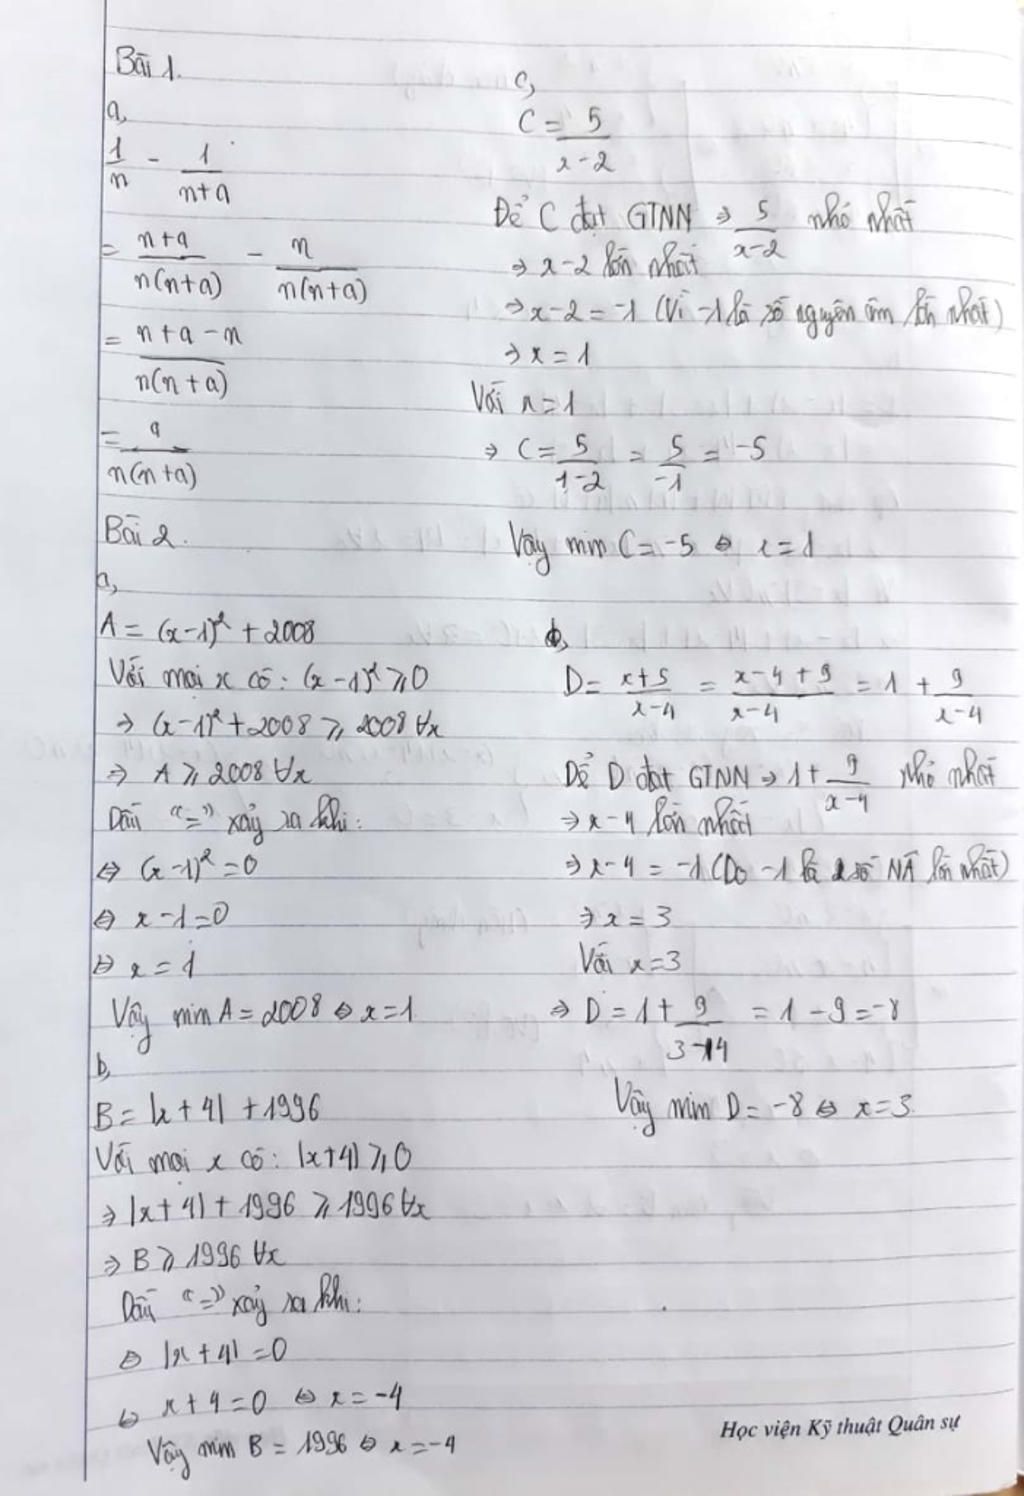 Bài 1.
a,
1/n - 1/(n+a)
= (n+a)/(n(n+a)) - n/(n(n+a))
= (n+a-n)/(n(n+a))
= a/(n(n+a))
Bài 2.
a,
A = (x-1)² + 2008
Với mọi x có: (x-1)² ⩾ 0
⇒ (x-1)² + 2008 ⩾ 2008 ∀x
⇒ A ⩾ 2008 ∀x
Dấu "=" xảy ra khi:
⇔ (x-1)² = 0
⇔ x-1=0
⇔ x = 1
Vậy min A = 2008 ⇔ x=1
b,
B = |x+4| + 1996
Với mọi x có: |x+4| ⩾ 0
⇒ |x+4| + 1996 ⩾ 1996 ∀x
⇒ B ⩾ 1996 ∀x
Dấu "=" xảy ra khi:
⇔ |x+4| = 0
⇔ x+4=0 ⇔ x = -4
Vậy min B = 1996 ⇔ x = -4
c,
C = 5/(x-2)
Để C đạt GTNN ⇒ 5/(x-2) nhỏ nhất
⇒ x-2 lớn nhất
⇒ x-2 = -1 (Vì -1 là số nguyên âm lớn nhất)
⇒ x = 1
Với x=1
⇒ C = 5/(1-2) = 5/-1 = -5
Vậy min C = -5 ⇔ x = 1
d,
D = (x+5)/(x-4) = (x-4+9)/(x-4) = 1 + 9/(x-4)
Để D đạt GTNN ⇒ 1 + 9/(x-4) nhỏ nhất
⇒ x-4 lớn nhất
⇒ x-4 = -1 (Do -1 là số NÂ lớn nhất)
⇒ x = 3
Với x=3
⇒ D = 1 + 9/(3-4) = 1 - 9 = -8
Vậy min D = -8 ⇔ x=3.
Học viện Kỹ thuật Quân sự